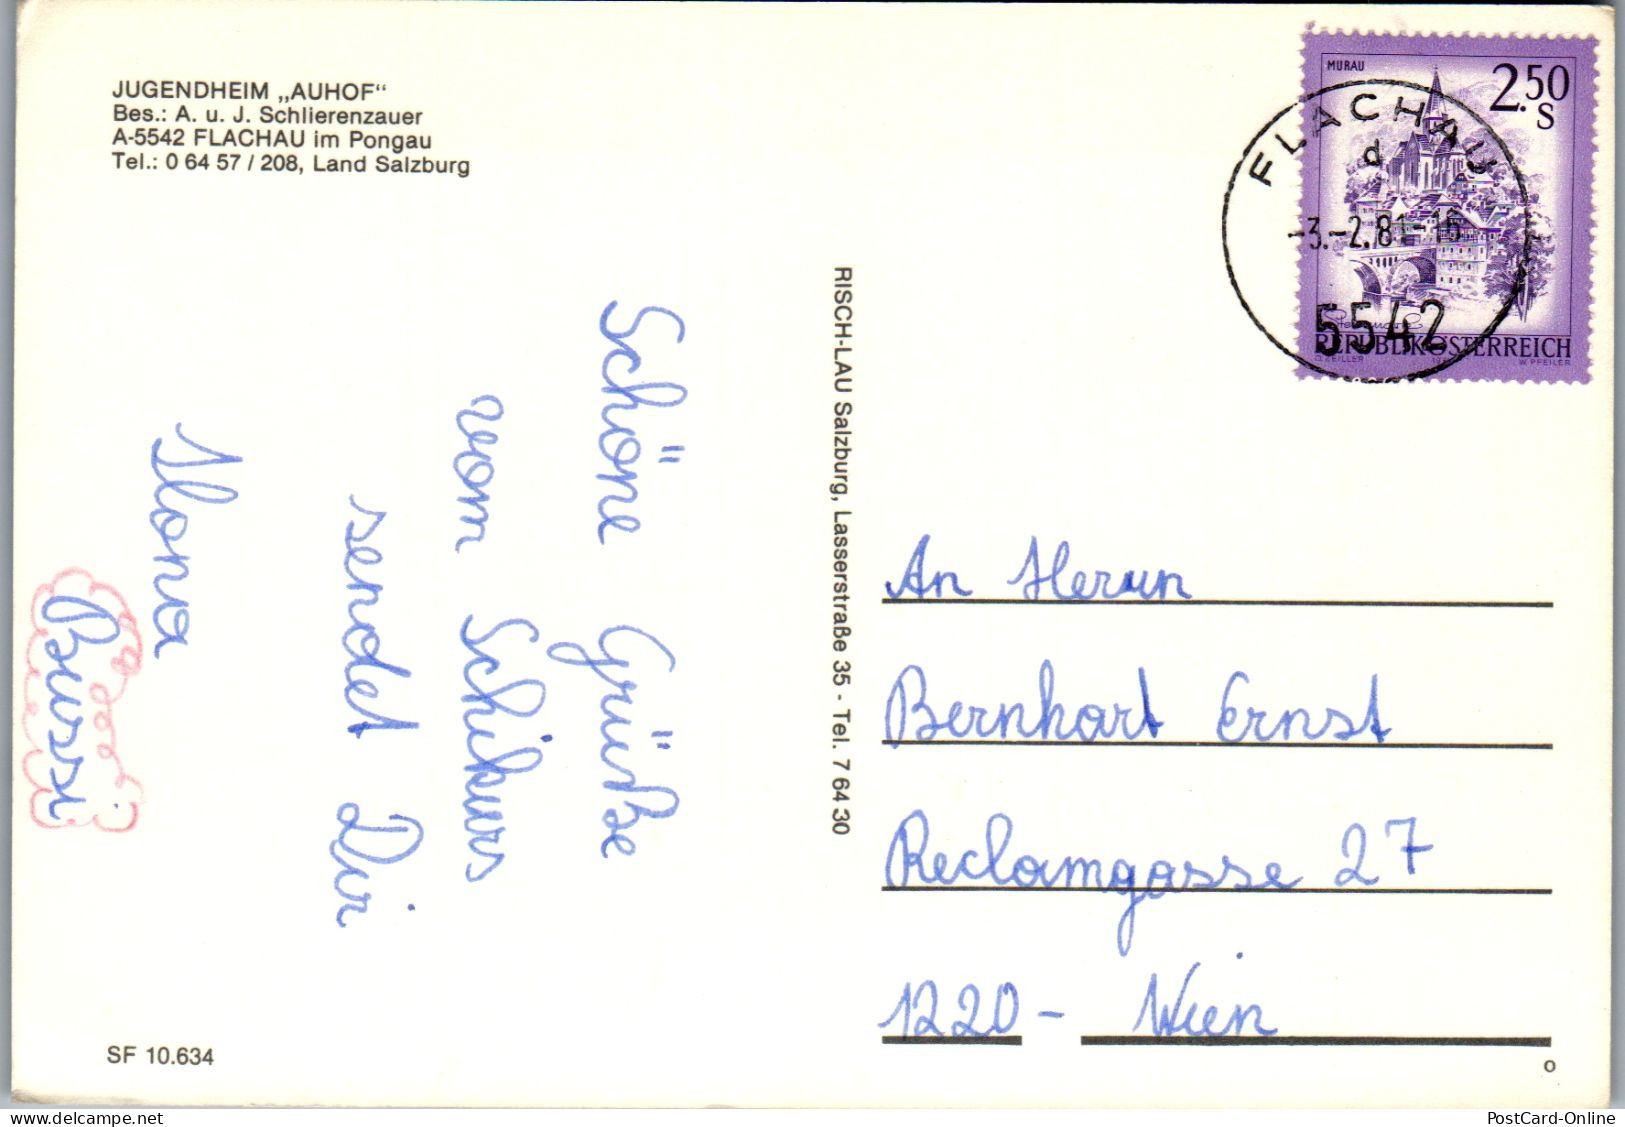 JUGENDHEIM „AUHOF“
Bes.: A. u. J. Schlierenzauer
A-5542 FLACHAU im Pongau
Tel.: 0 64 57 / 208, Land Salzburg
Schöne Grüße
vom Schikurs
sendet Dir
Ilona
Bussi
SF 10.634
RISCH-LAU Salzburg, Lasserstraße 35 - Tel. 7 64 30
MURAU
2.50
S
REPUBLIK ÖSTERREICH
O. ZEILLER
W. PFEILER
FLACHAU
d
-3.-2.81-16
5542
An Herrn
Bernhart Ernst
Reclamgasse 27
1220 - Wien
o
www.delcampe.net
PostCard-Online